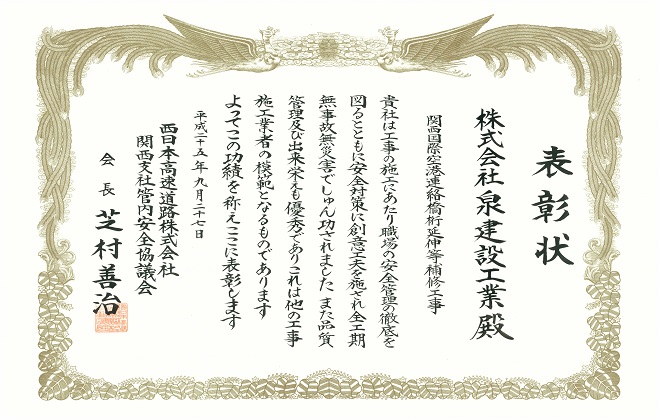 表彰状
株式会社泉建設工業殿
関西国際空港連絡橋桁延伸等補修工事
貴社は工事の施工にあたり職場の安全管理の徹底を
図るとともに安全対策に創意工夫を施され全工期
無事故無災害でしゅん功されました また品質
管理及び出来栄えも優秀でありこれは他の工事
施工業者の模範となるものであります
よってこの功績を称えここに表彰します
平成二十五年九月二十七日
西日本高速道路株式会社
関西支社管内安全協議会
会長 芝村善治